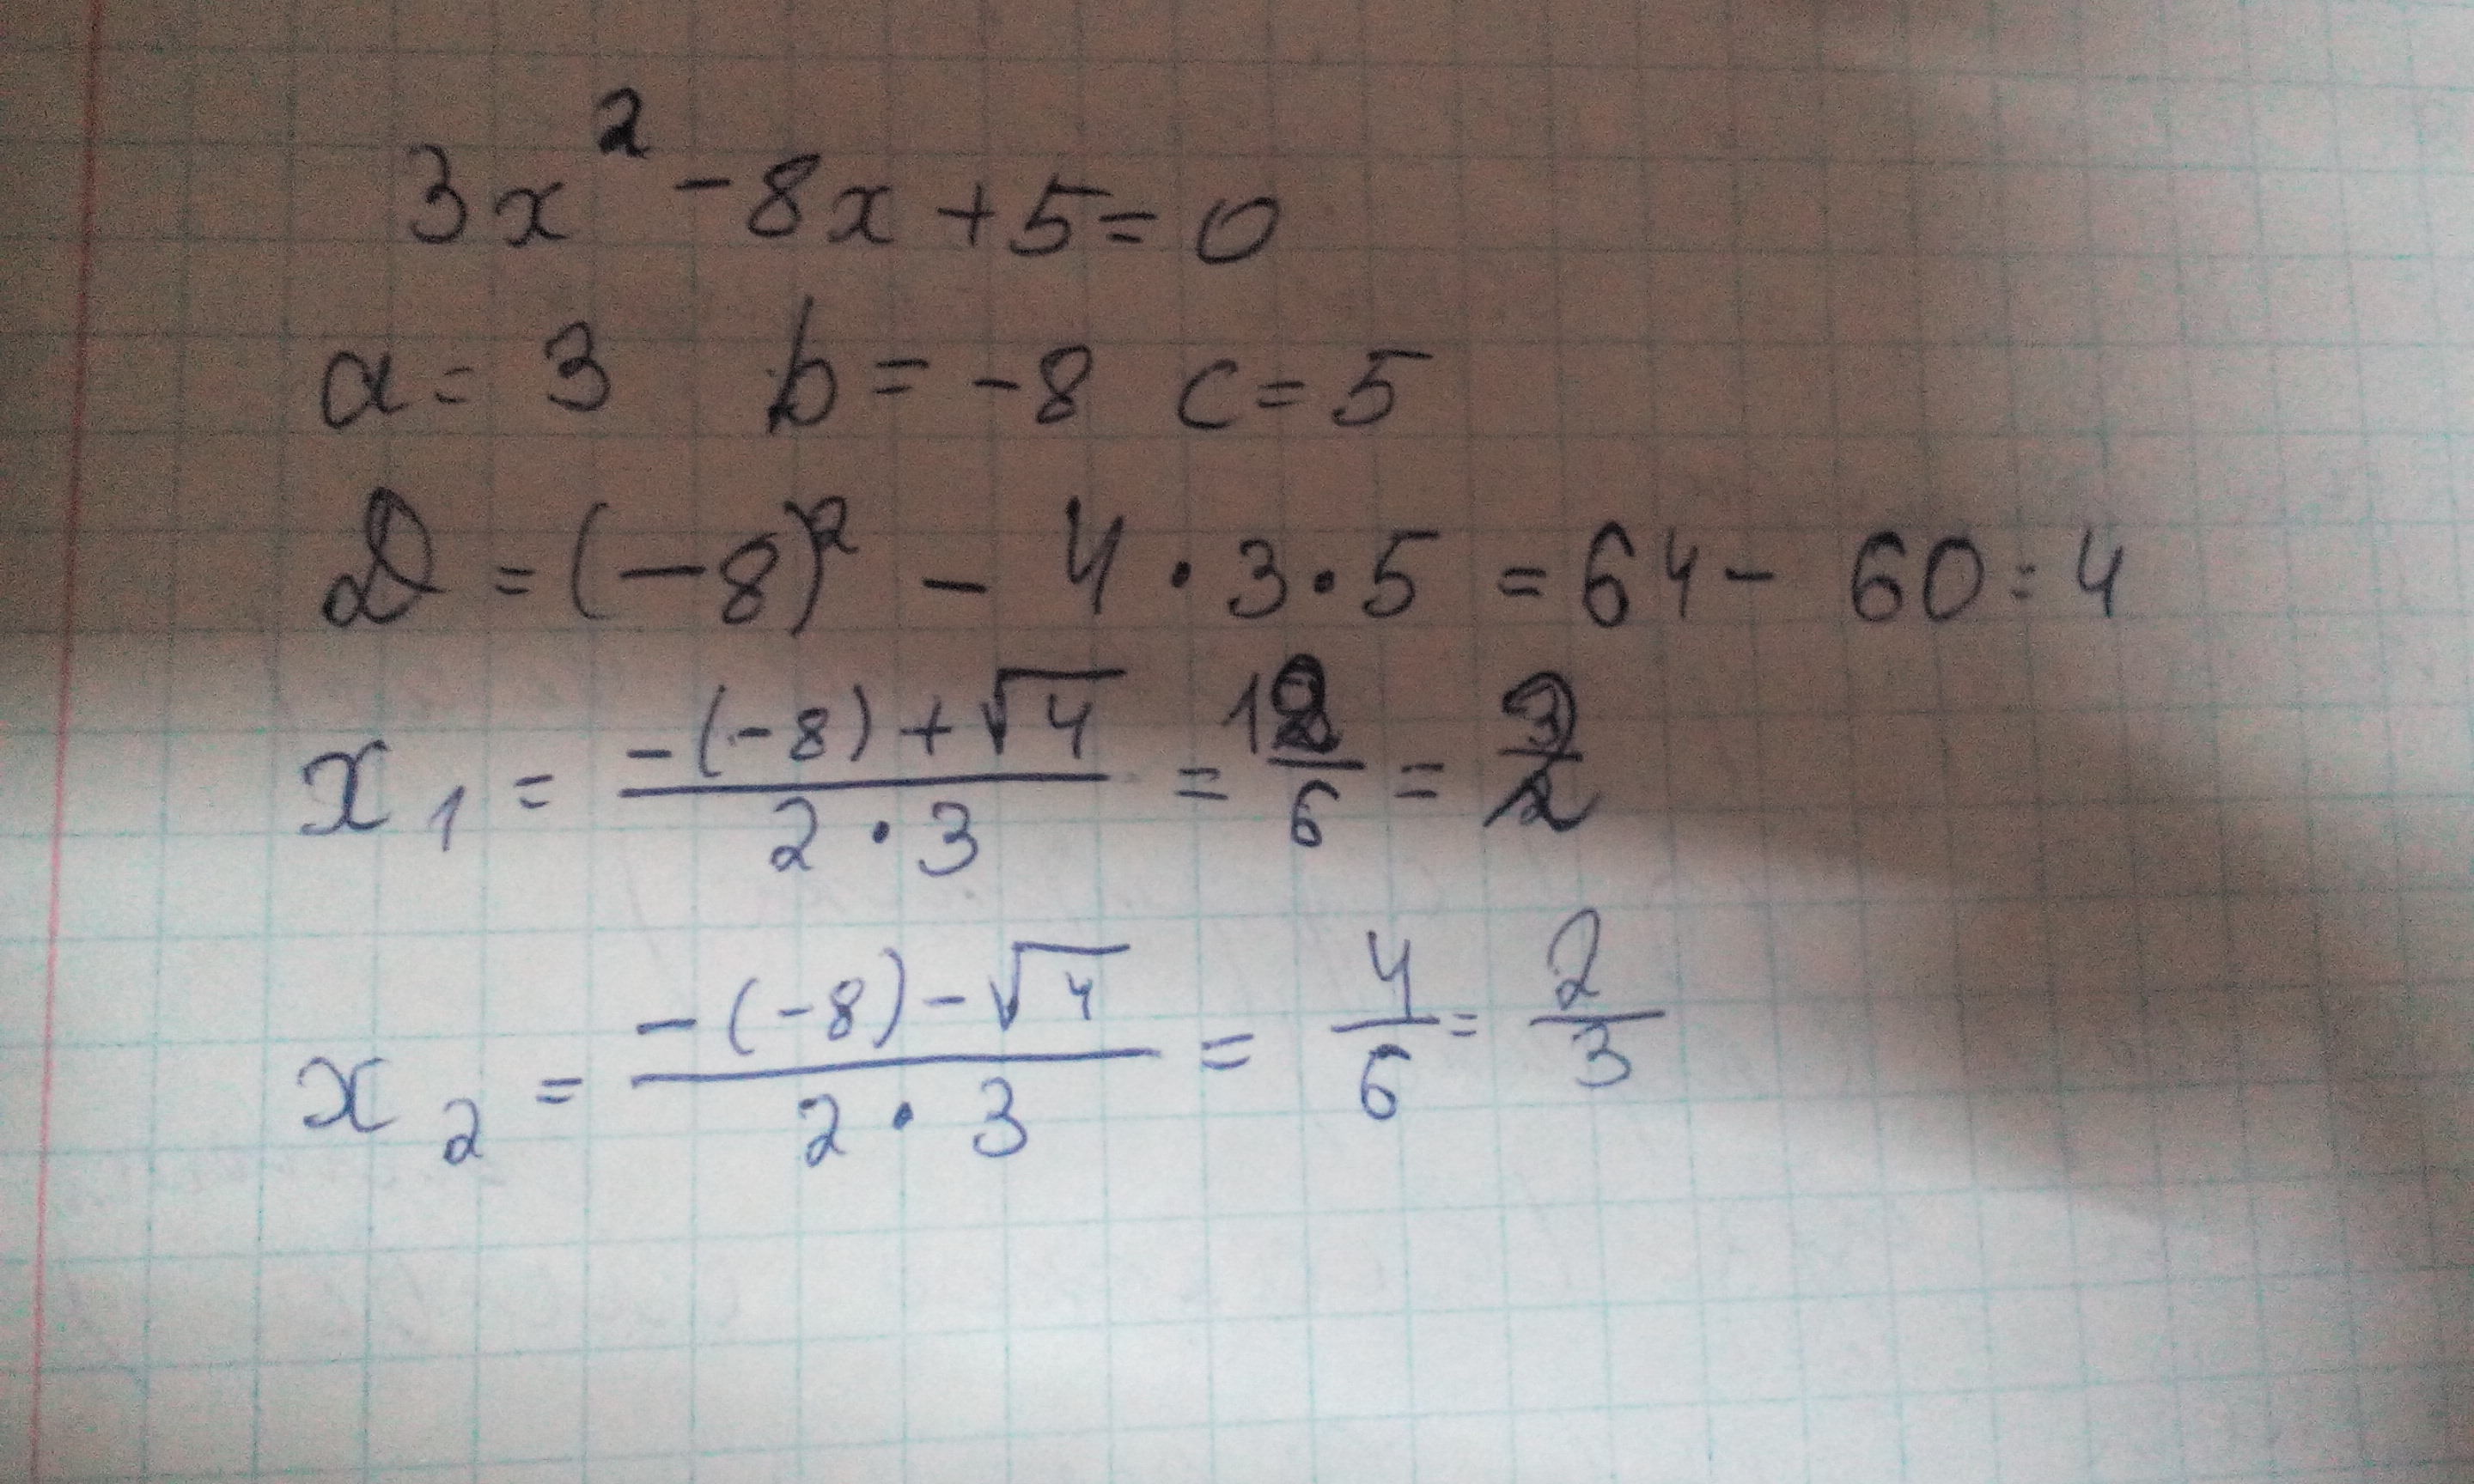 3x² - 8x + 5 = 0
a = 3 b = -8 c = 5
D = (-8)² - 4 · 3 · 5 = 64 - 60 = 4
x₁ = (-(-8) + √4)/(2 · 3) = 12/6 = 2
x₂ = (-(-8) - √4)/(2 · 3) = 4/6 = 2/3